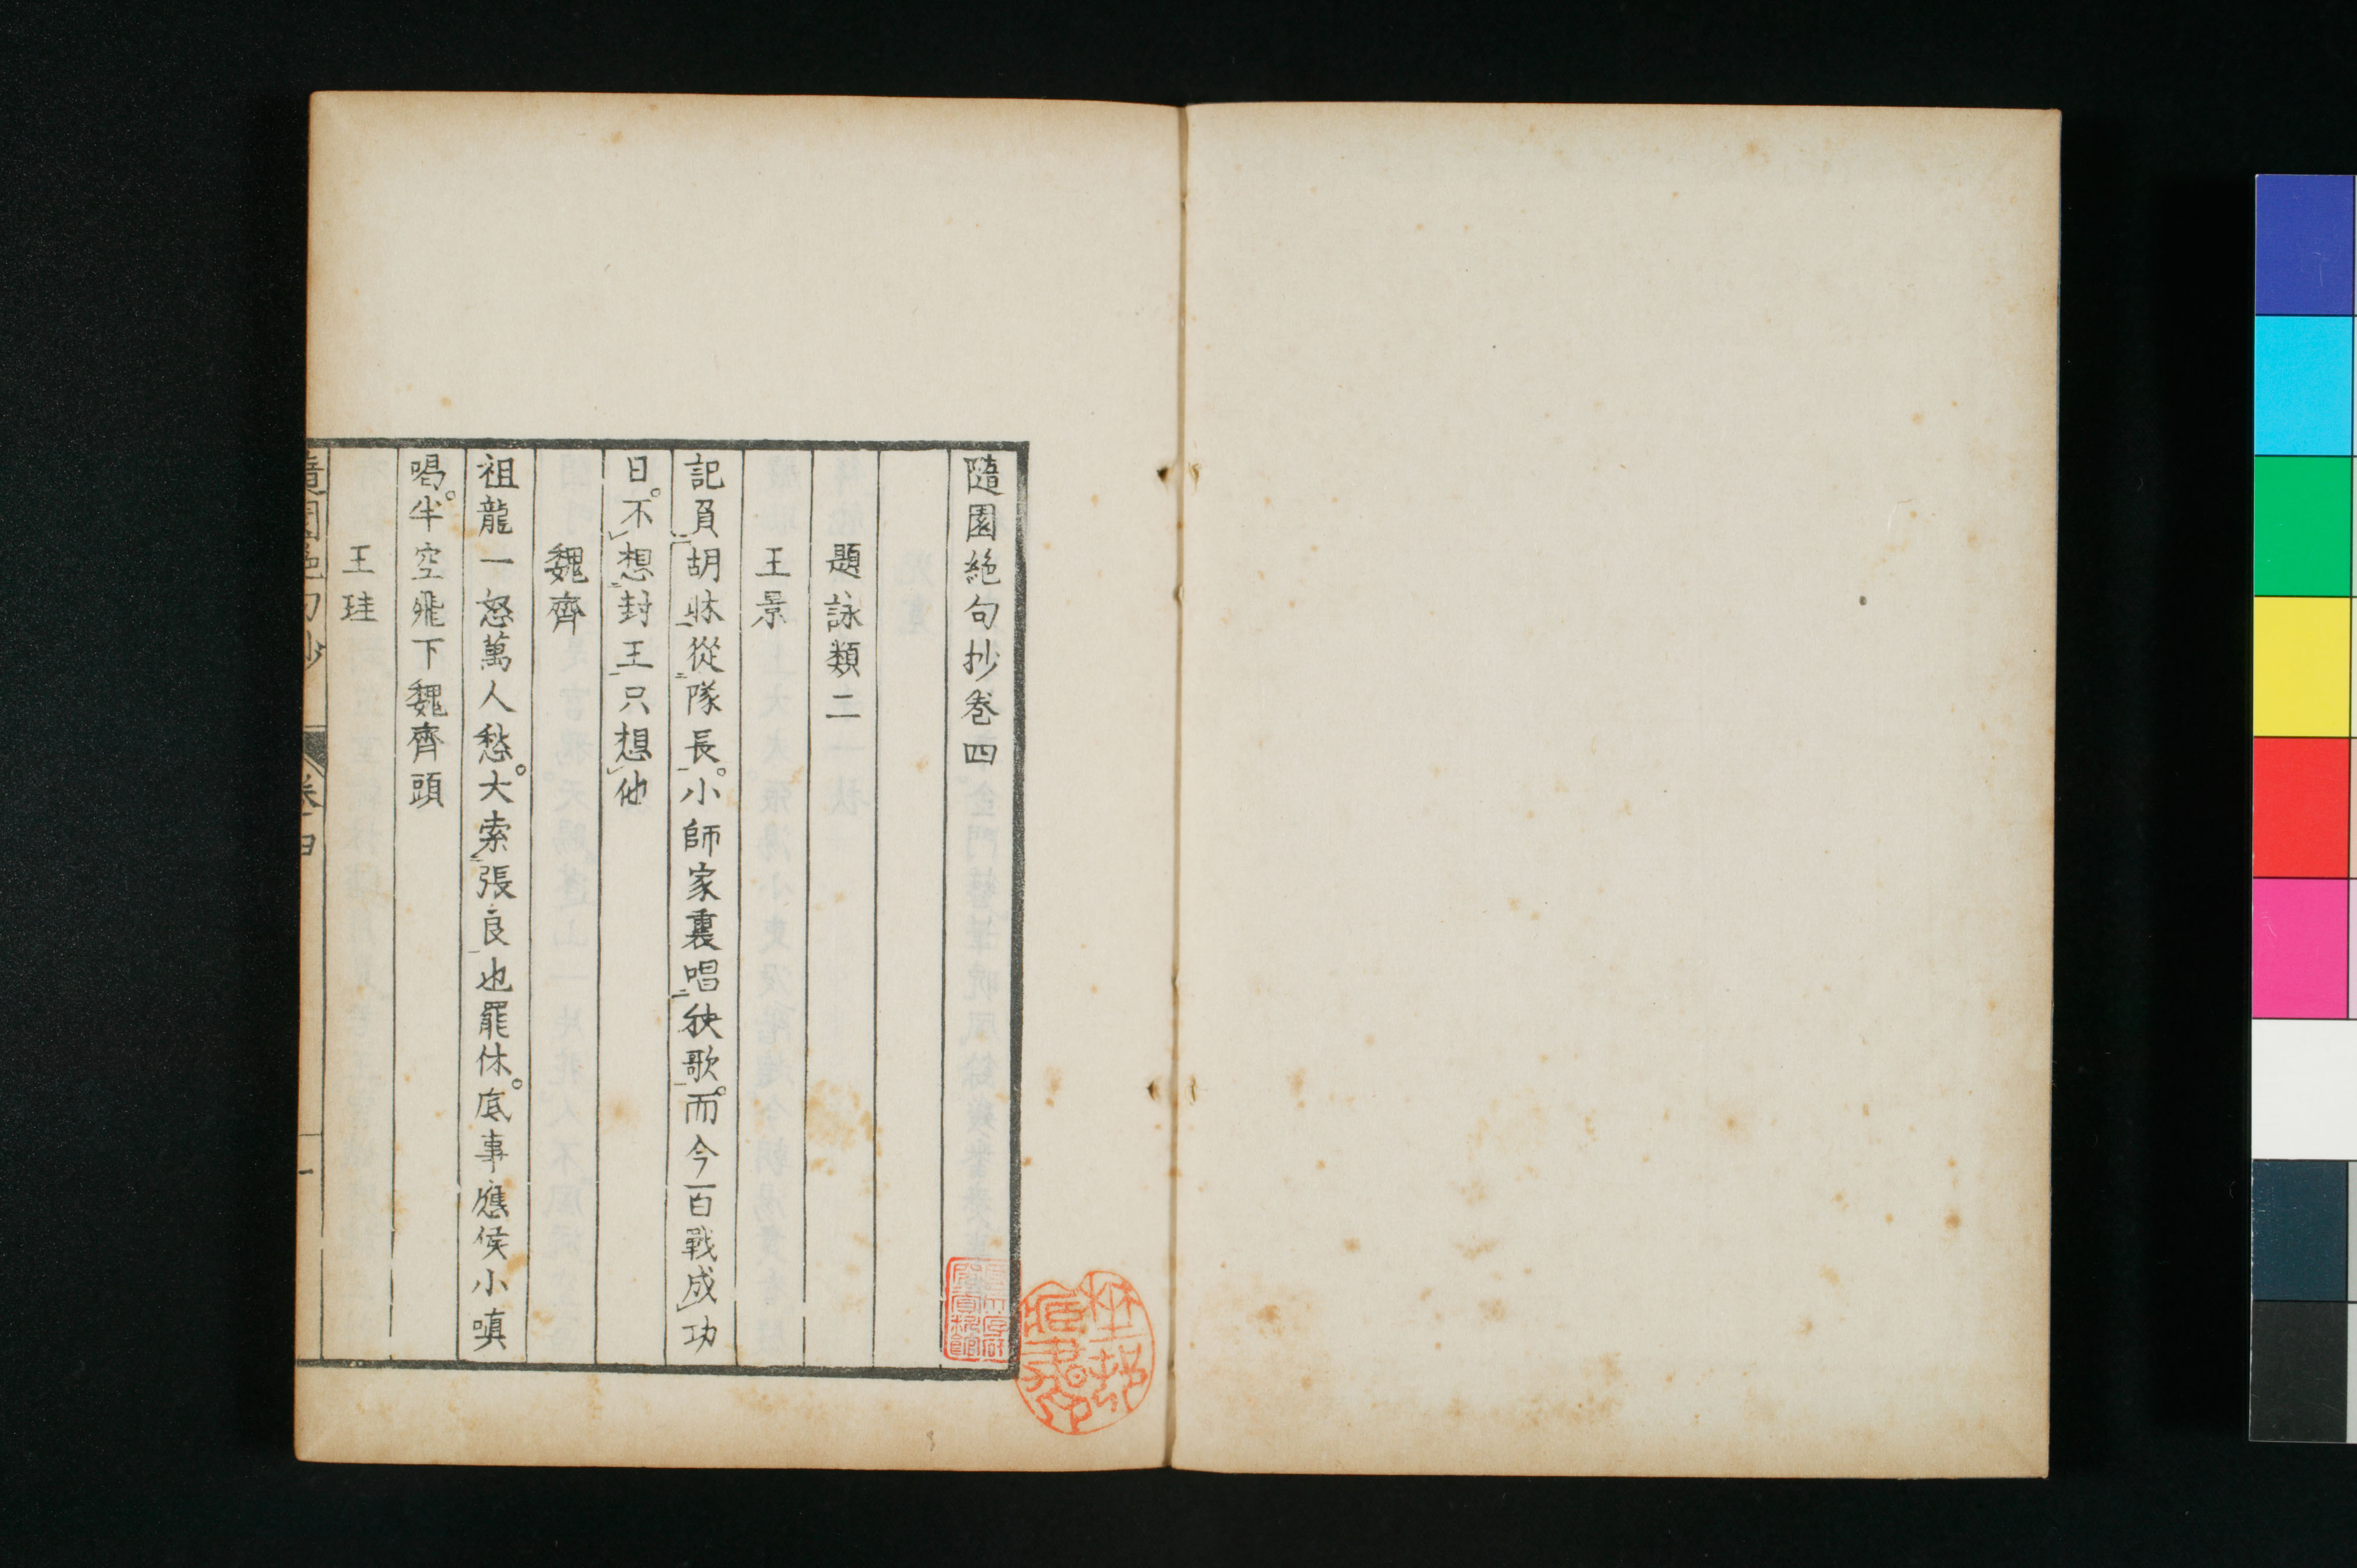 隨園絶句抄巻四
題詠類二
王景
記負胡牀從隊長。小師家裏唱秧歌。而今百戰成功
日。不想封王只想他
魏齊
祖龍一怒萬人愁。大索張良也罷休。底事應侯小嗔
喝。半空飛下魏齊頭
王珪
隨園絶句抄
卷四
一